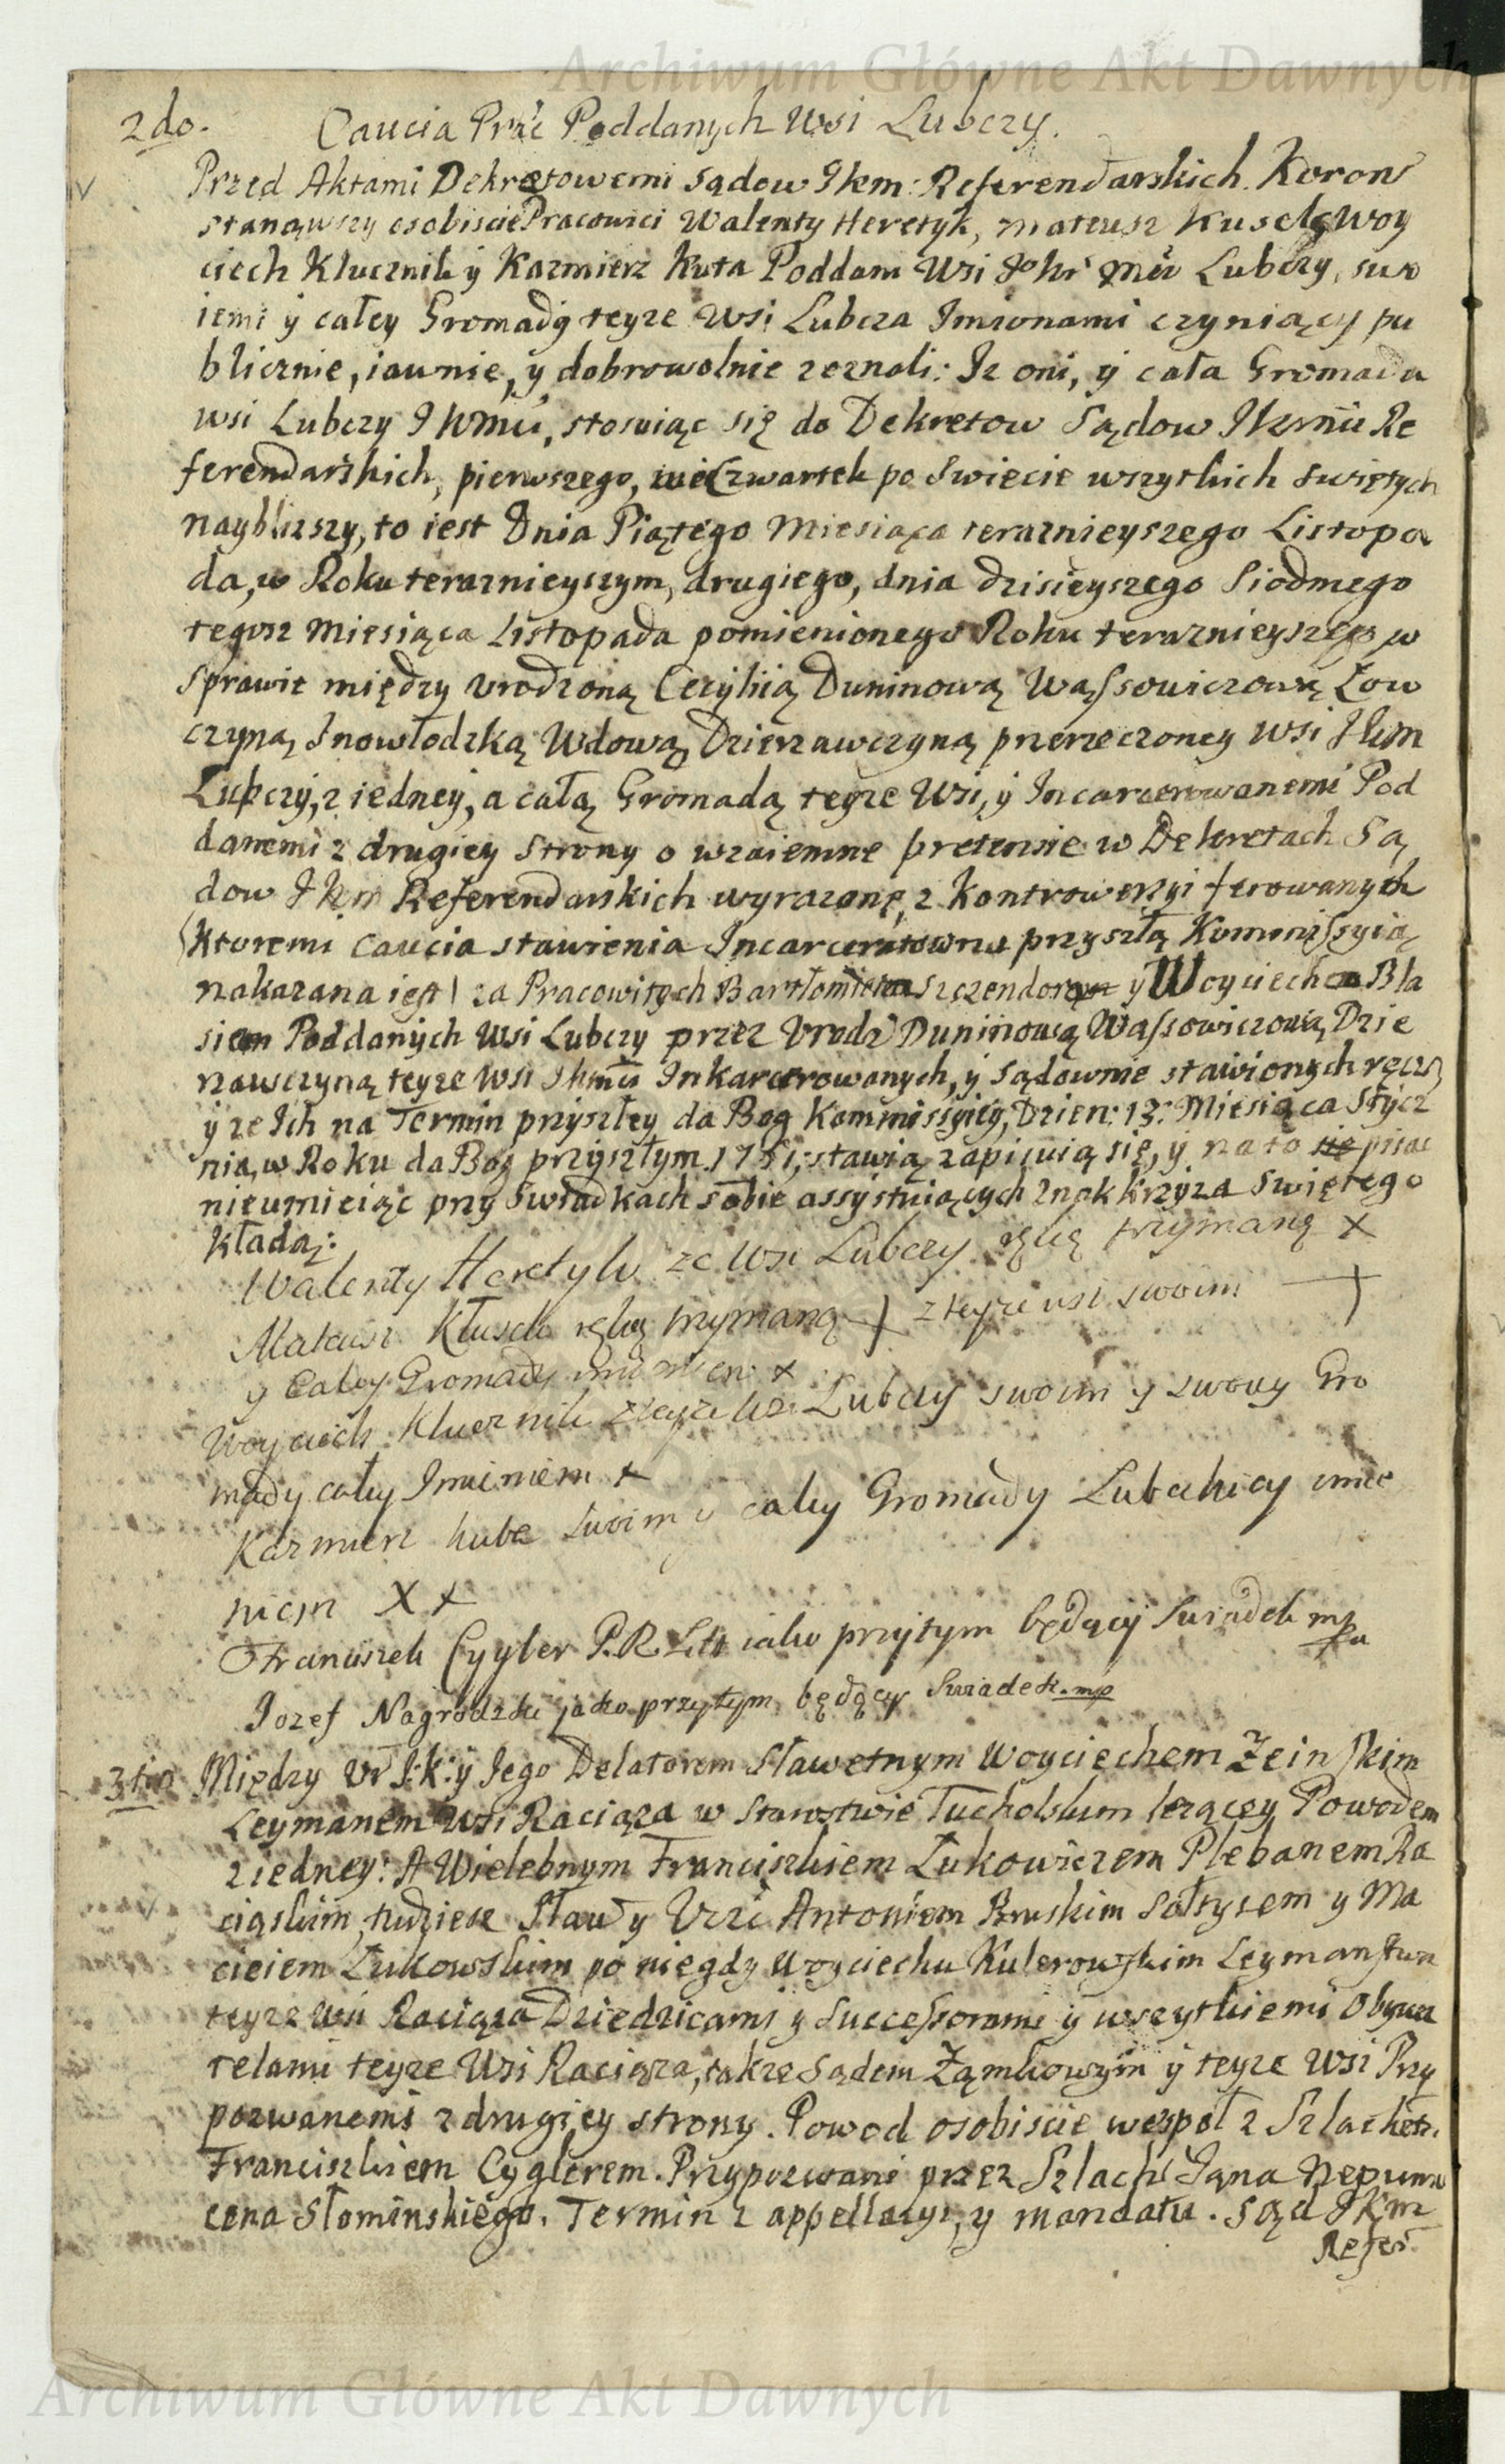 Archiwum Główne Akt Dawnych
2do. Caucia Prac Poddanych Wsi Lubczy.
Przed Aktami Dekretowemi Sądow Jkm: Referendarskich Koron
stanąwszy osobiscie Pracowici Walenty Heretyk, Mateusz Kusek, Woy
ciech Klucznik y Kazmierz Kuta Poddani Wsi Lubczy, swo
iemi y całey Gromady teyze Wsi Lubcza Imionami czyniący pu
blicznie, iawnie, y dobrowolnie zeznali: Iz oni, y cała Gromada
wsi Lubczy JKmci, stosuiąc się do Dekretow Sądow Jkmci Re
ferendarskich, pierwszego, we Czwartek po Swięcie wszytkich swiętych
nayblizszy, to iest Dnia Piątego Miesiąca teraznieyszego Listopa
da, w Roku teraznieyszym, drugiego, dnia dzisieyszego Siodmego
tegosz Miesiąca Listopada pomienionego Roku teraznieyszego w
Sprawie między Vrodzoną Cecylią Duninową Wąssowiczową Łow
czyną Inowłodzką Wdową, Dzierzawczyną przerzeczoney wsi Jkm
Lubczy, z iedney, a całą Gromadą teyze Wsi, y Incarcerowanemi Pod
danemi z drugiey strony o wzaiemne pretensie w Dekretach Są
dow Jkm Referendarskich wyrazone, z Kontrowersyi ferowanych
(Ktoremi Caucia stawienia Incarceratow na przyszłą Kommissyią
nakazana iest) za Pracowitych Bartłomieia Szczendora y Woyciecha Bla
siem Poddanych Wsi Lubczy przez Vrodz Duninową Wassowiczową Dzie
rzawczyną teyze Wsi Jkmci Inkarcerowanych, y Sądownie stawionych ręczą
y ze Ich na Termin przyszłey da Bog Kommissyiey, Dzien: 13: Miesiąca Stycz
nia, w Roku da Bog przyszłym 1751, stawią zapisuią się, y na to się pisac
nieumieiąc przy Swiadkach sobie assystuiących Znak Krzyza Swiętego
kładą:
Walenty Heretyk ze Wsi Lubczy ręką trzymaną X
Mateusz Kłusek ręką trzymaną + z teyze wsi swoim +
y Całey Gromady imieniem x
Woyciech Klucznik z teyze Wsi Lubczy swoim y swoiey Gro
mady całey Imieniem x
Kazmierz Kuta swoim y całey Gromady Lubeckicy imie
niem X x
Franciszek Cygler P. R. iako przytym będący Swiadek mp
Jozef Nagrodzki jako przytym będący Swiadek. mp
3tio Między Vr J:k: y Jego Delatorem Sławetnym Woyciechem Zeinskim
Leymanem Wsi Raciąza w Starostwie Tucholskim lezącey Powodem
z iedney: A Wielebnym Franciszkiem Łukowiczem Plebanem Ra
ciąskim, tudziesz Sław y Vczc Antonim Bruskim Sołtysem y Ma
cieiem Łukowskim po niegdy Woyciechu Kulerowskim Leymanstwa
teyze Wsi Raciąza Dziedzicami y Successorami y wszytkiemi Obywa
telami teyze Wsi Raciąza, takze Sądem Zamkowym y teyze Wsi Przy
pozwanemi z drugiey strony. Powod osobiscie wespoł z Szlachetn.
Franciszkiem Cyglerem. Przypozwani przez Szlach Jana Nepumu
cena Słominskiego. Termin z appellacyi, y mandatu. Sąd Jkm
Refer
Archiwum Główne Akt Dawnych